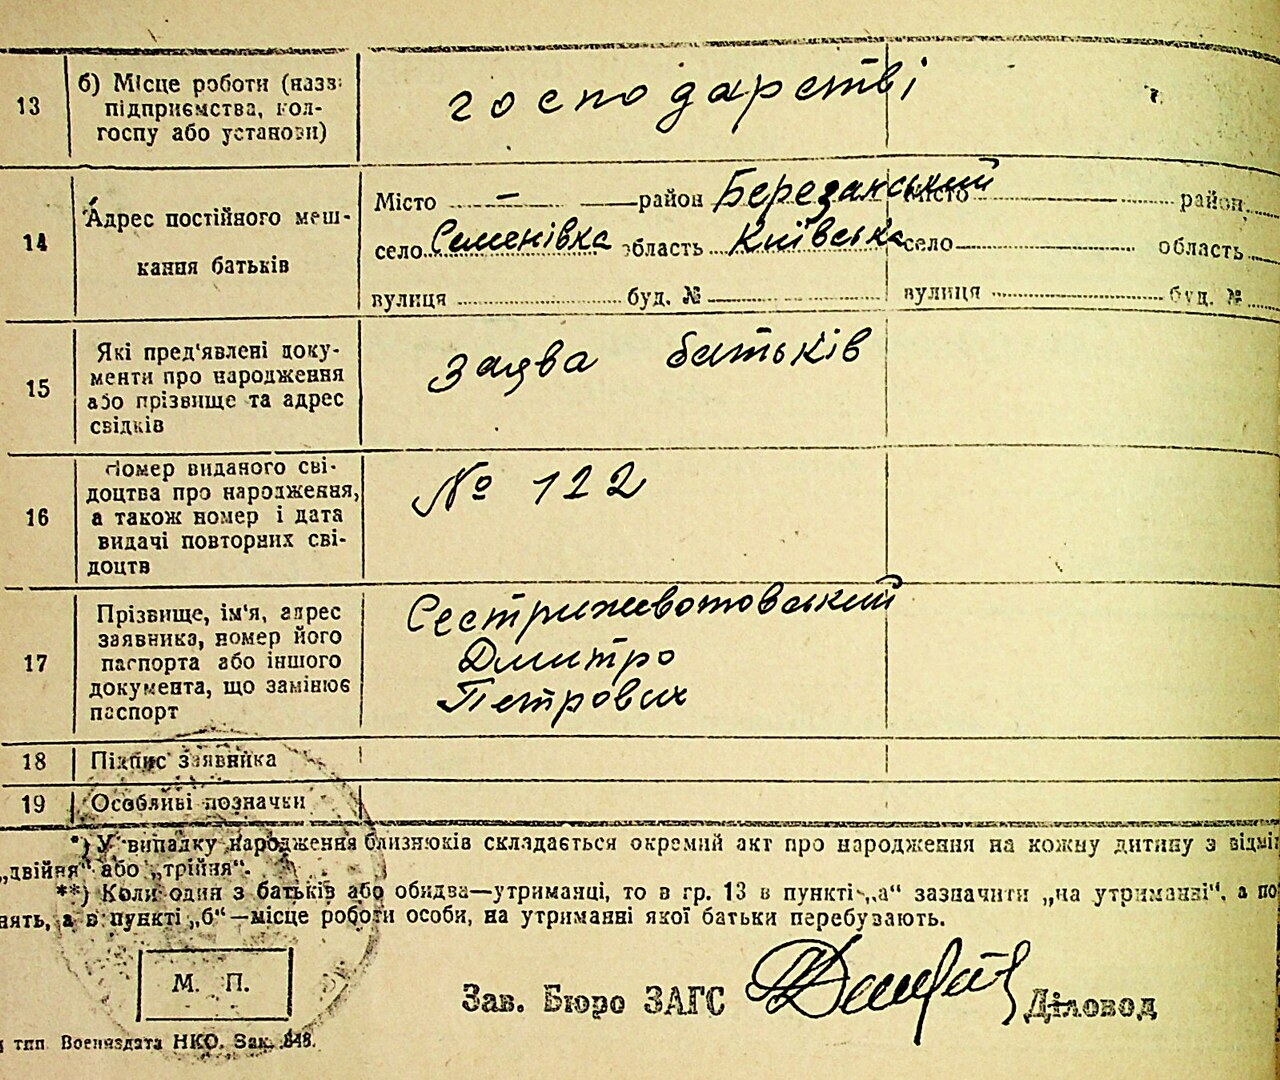 13 б) Місце роботи (назв
підприємства, кол-
госпу або установи)
господарстві
14 Адрес постійного меш-
кання батьків
Місто — район Березанський Місто район
село Семенівка область Київська село область
вулиця буд. № вулиця буд. №
15 Які пред'явлені доку-
менти про народження
або прізвище та адрес
свідків
Заява батьків
16 Номер виданого сві-
доцтва про народження,
а також номер і дата
видачі повторних сві-
доцтв
№ 122
17 Прізвище, ім'я, адрес
заявника, номер його
паспорта або іншого
документа, що замінює
паспорт
Сестрижевотовський
Дмитро
Петрович
18 Підпис заявника
19 Особливі позначки
*) У випадку народження близнюків складається окремий акт про народження на кожну дитину з відмі
„двійня“ або „трійня“.
**) Коли один з батьків або обидва—утриманці, то в гр. 13 в пункті „а“ зазначити „на утриманні“, а по
нять, а в пункті „б“—місце роботи особи, на утриманні якої батьки перебувають.
М. П.
Зав. Бюро ЗАГС Діловод
тип. Воениздата НКО. Зак. 848.